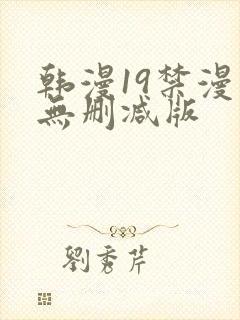 韩漫19禁漫
無删减版
劉秀芹